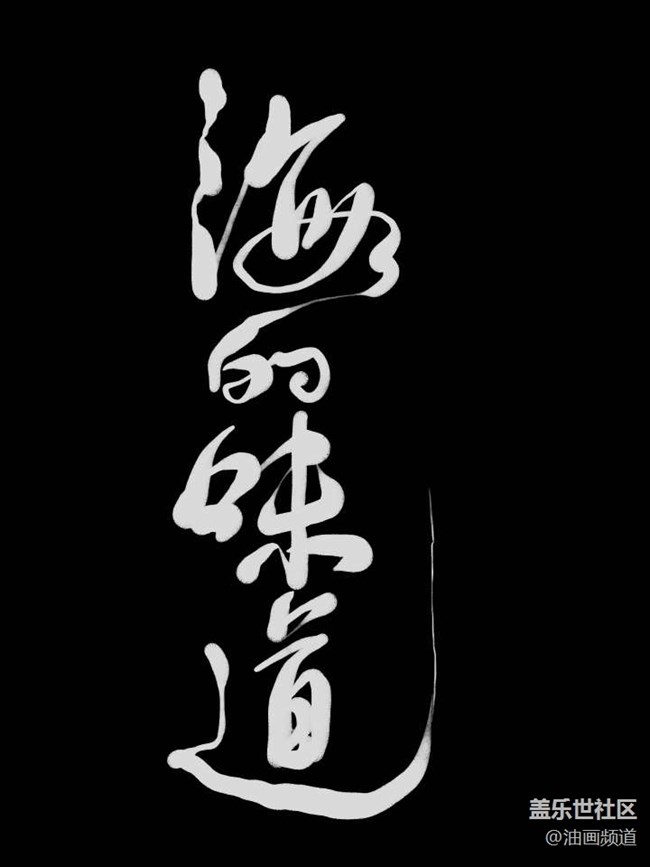 海的味道
盖乐世社区
@油画频道